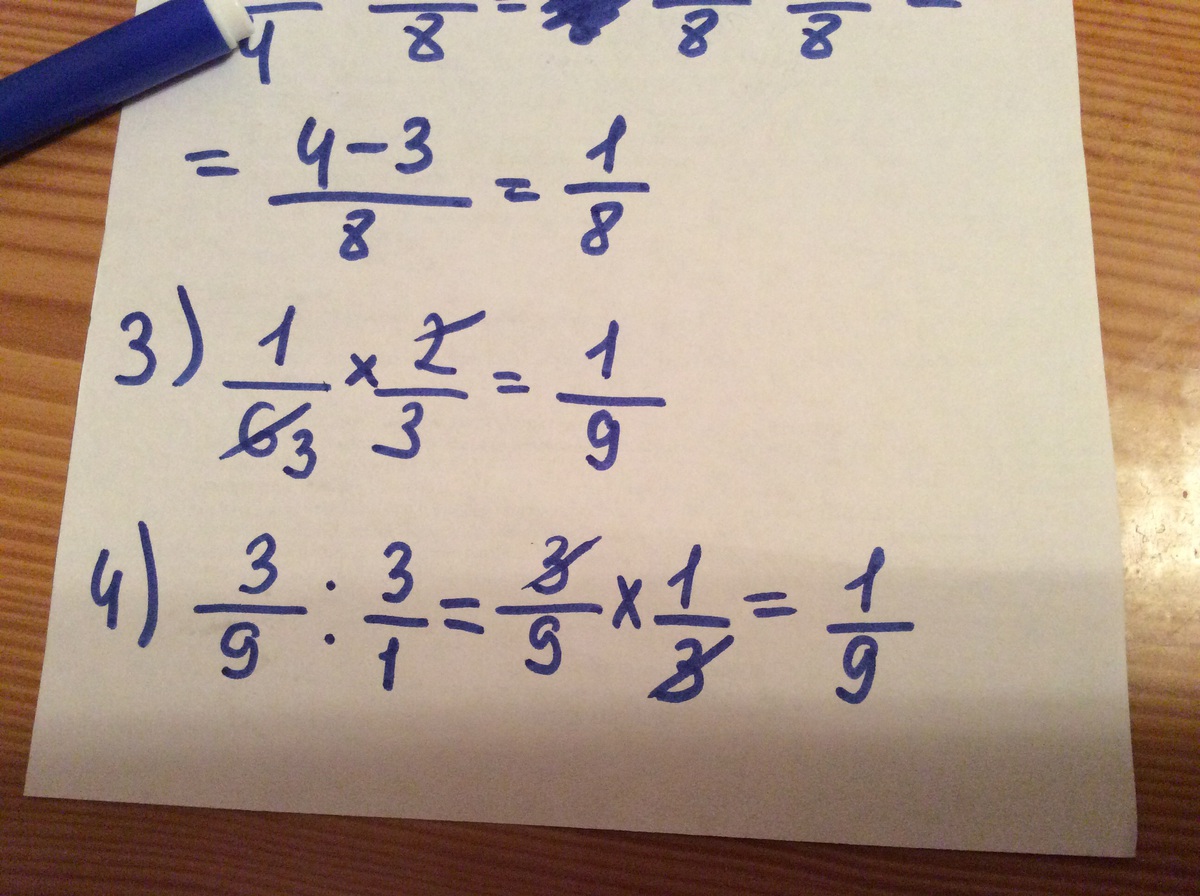 /4 /8 = /8 /8 =
= 4-3/8 = 1/8
3) 1/63 × 2/3 = 1/9
4) 3/9 : 3/1 = 3/9 × 1/3 = 1/9